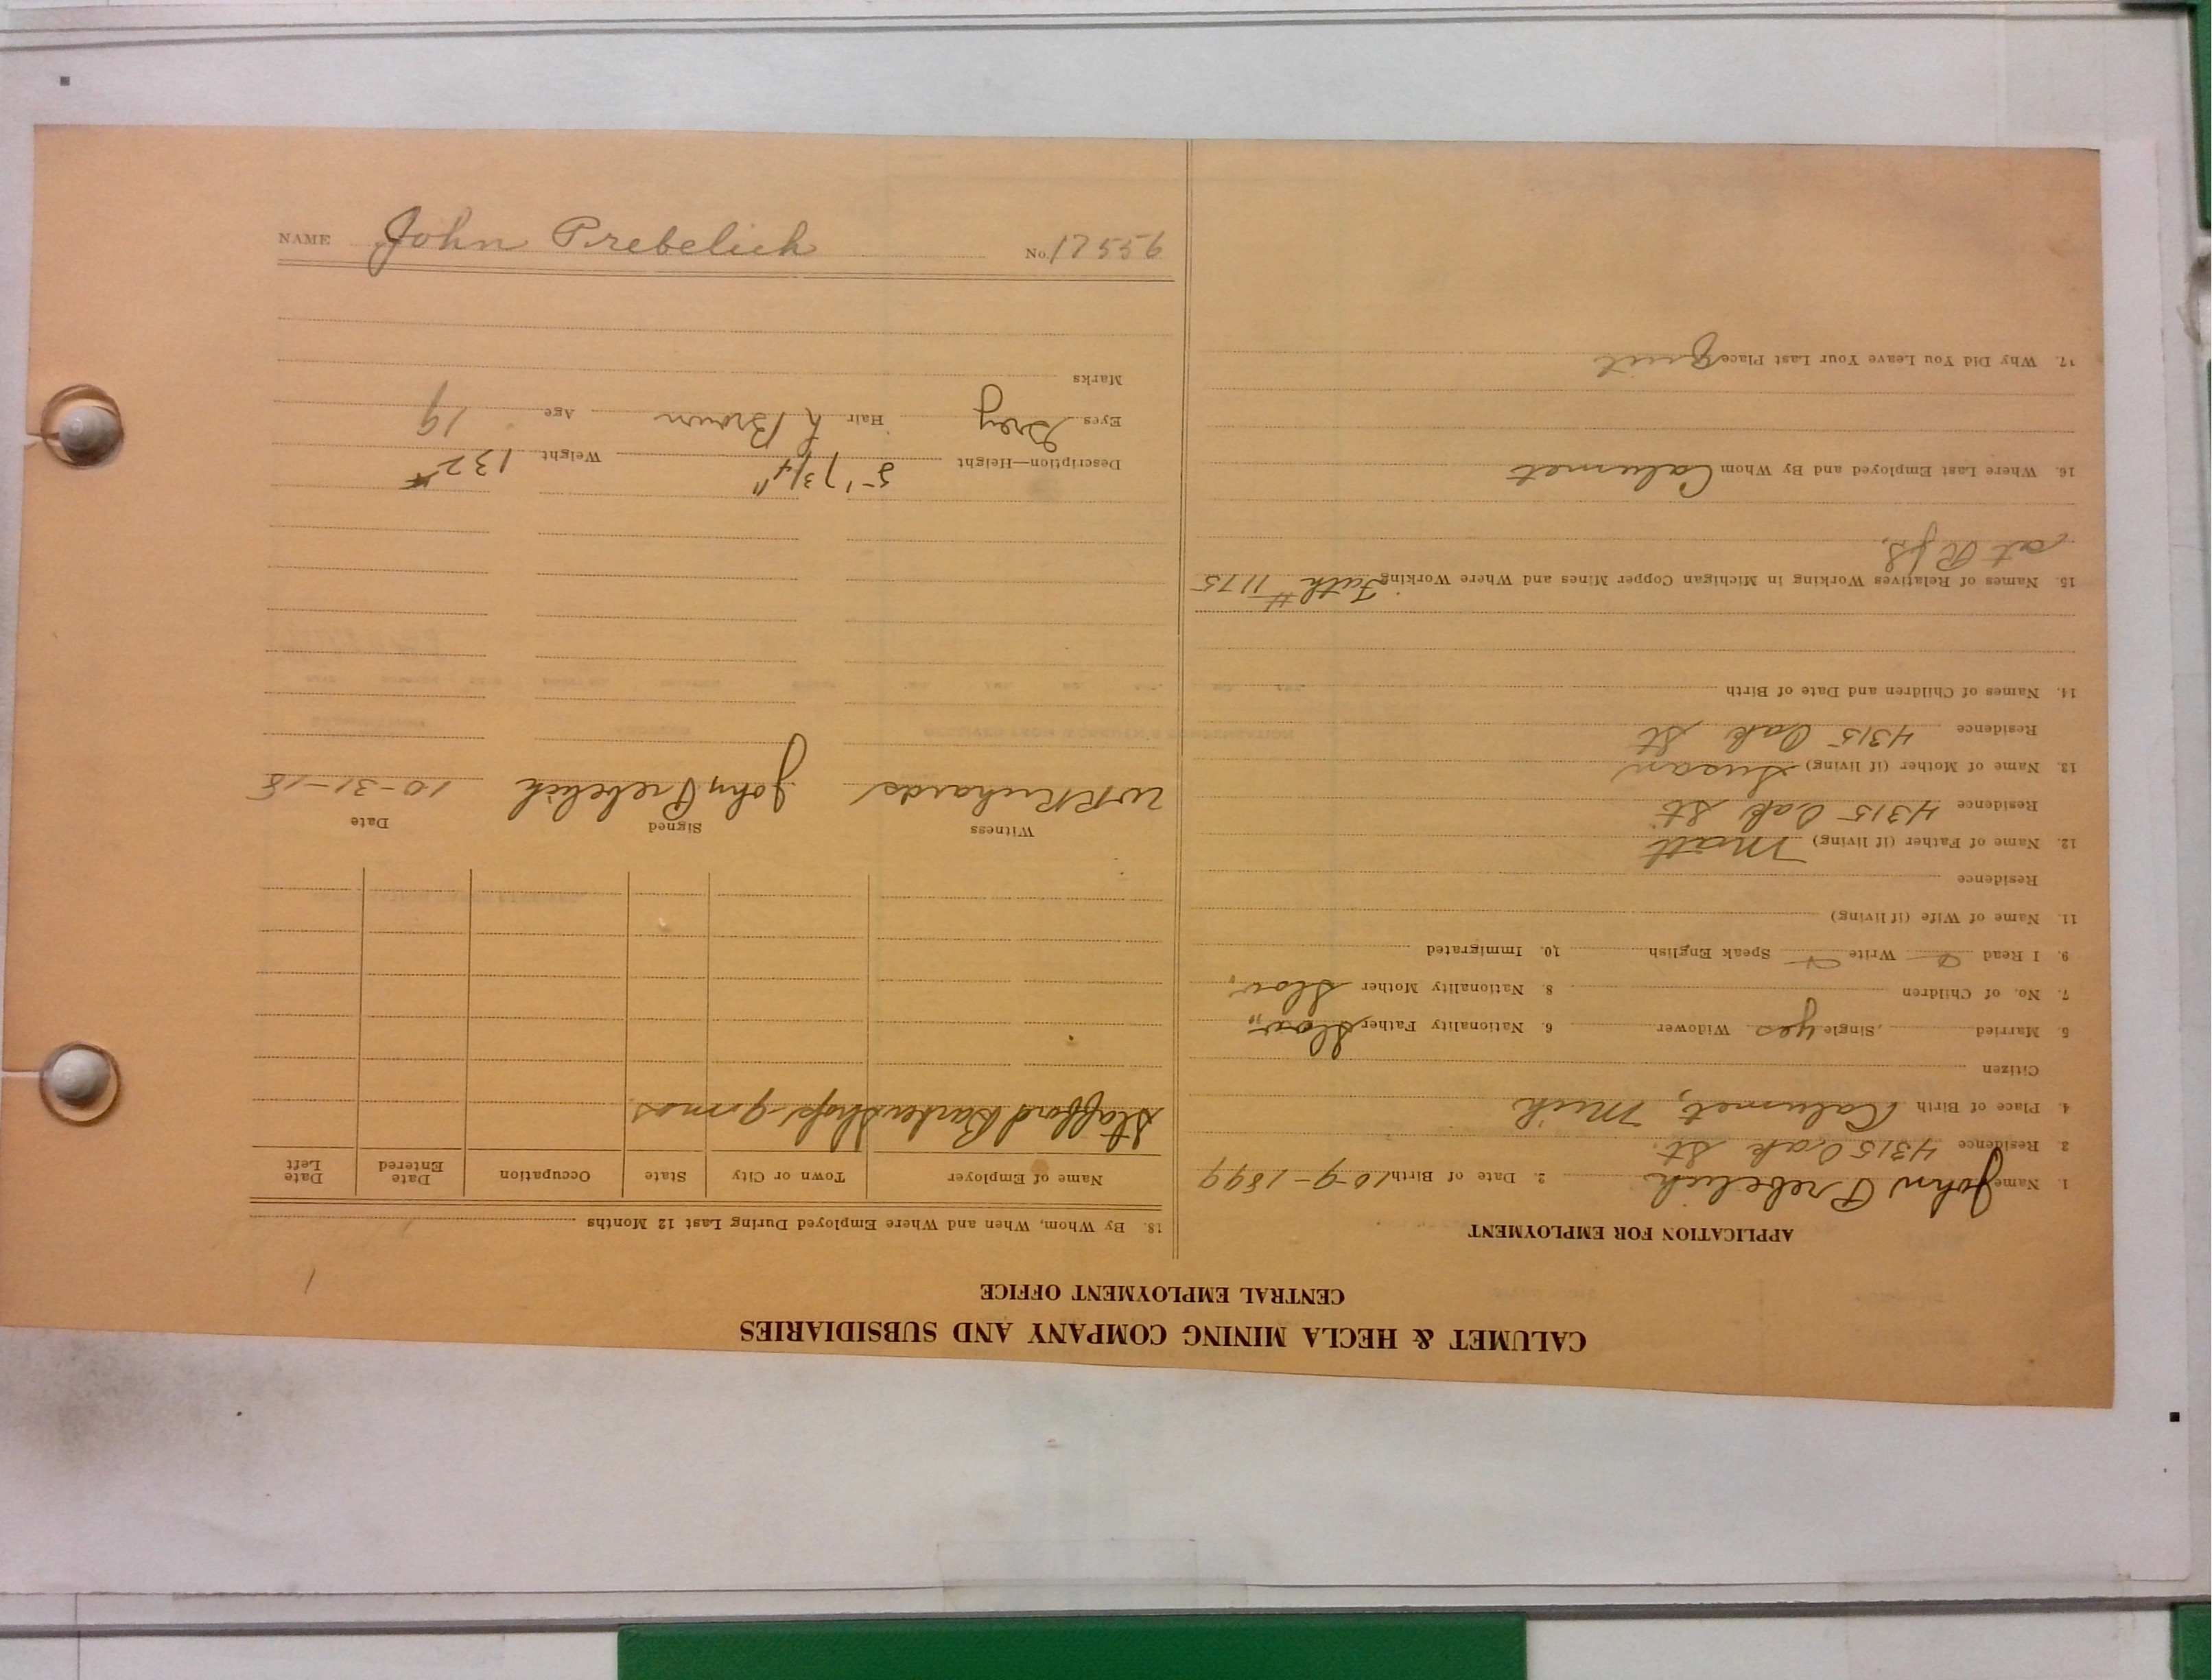 CALUMET & HECLA MINING COMPANY AND SUBSIDIARIES
CENTRAL EMPLOYMENT OFFICE
APPLICATION FOR EMPLOYMENT
1. Name John Prebelich 2. Date of Birth 10-9-1899
3. Residence 4315 Oak St.
4. Place of Birth Calumet, Mich
Citizen
5. Married Single yes Widower 6. Nationality Father Slov.
7. No. of Children 8. Nationality Mother Slov.
9. I Read Write Speak English 10. Immigrated
11. Name of Wife (if living)
Residence
12. Name of Father (if living) Matt
Residence 4315 Oak St
13. Name of Mother (if living) Susan
Residence 4315 Oak St
14. Names of Children and Date of Birth
15. Names of Relatives Working in Michigan Copper Mines and Where Working Fath # 1175
at
16. Where Last Employed and By Whom Calumet
17. Why Did You Leave Your Last Place Quit
18. By Whom, When and Where Employed During Last 12 Months
Name of Employer Town or City State Occupation Date Entered Date Left
Stafford Barber Shop 9 mos
Witness Signed Date
W R Richards John Prebelich 10-31-18
Description—Height 5' 7 3/4" Weight 132#
Eyes Grey Hair L Brown Age 19
Marks
NAME John Prebelich No. 17556